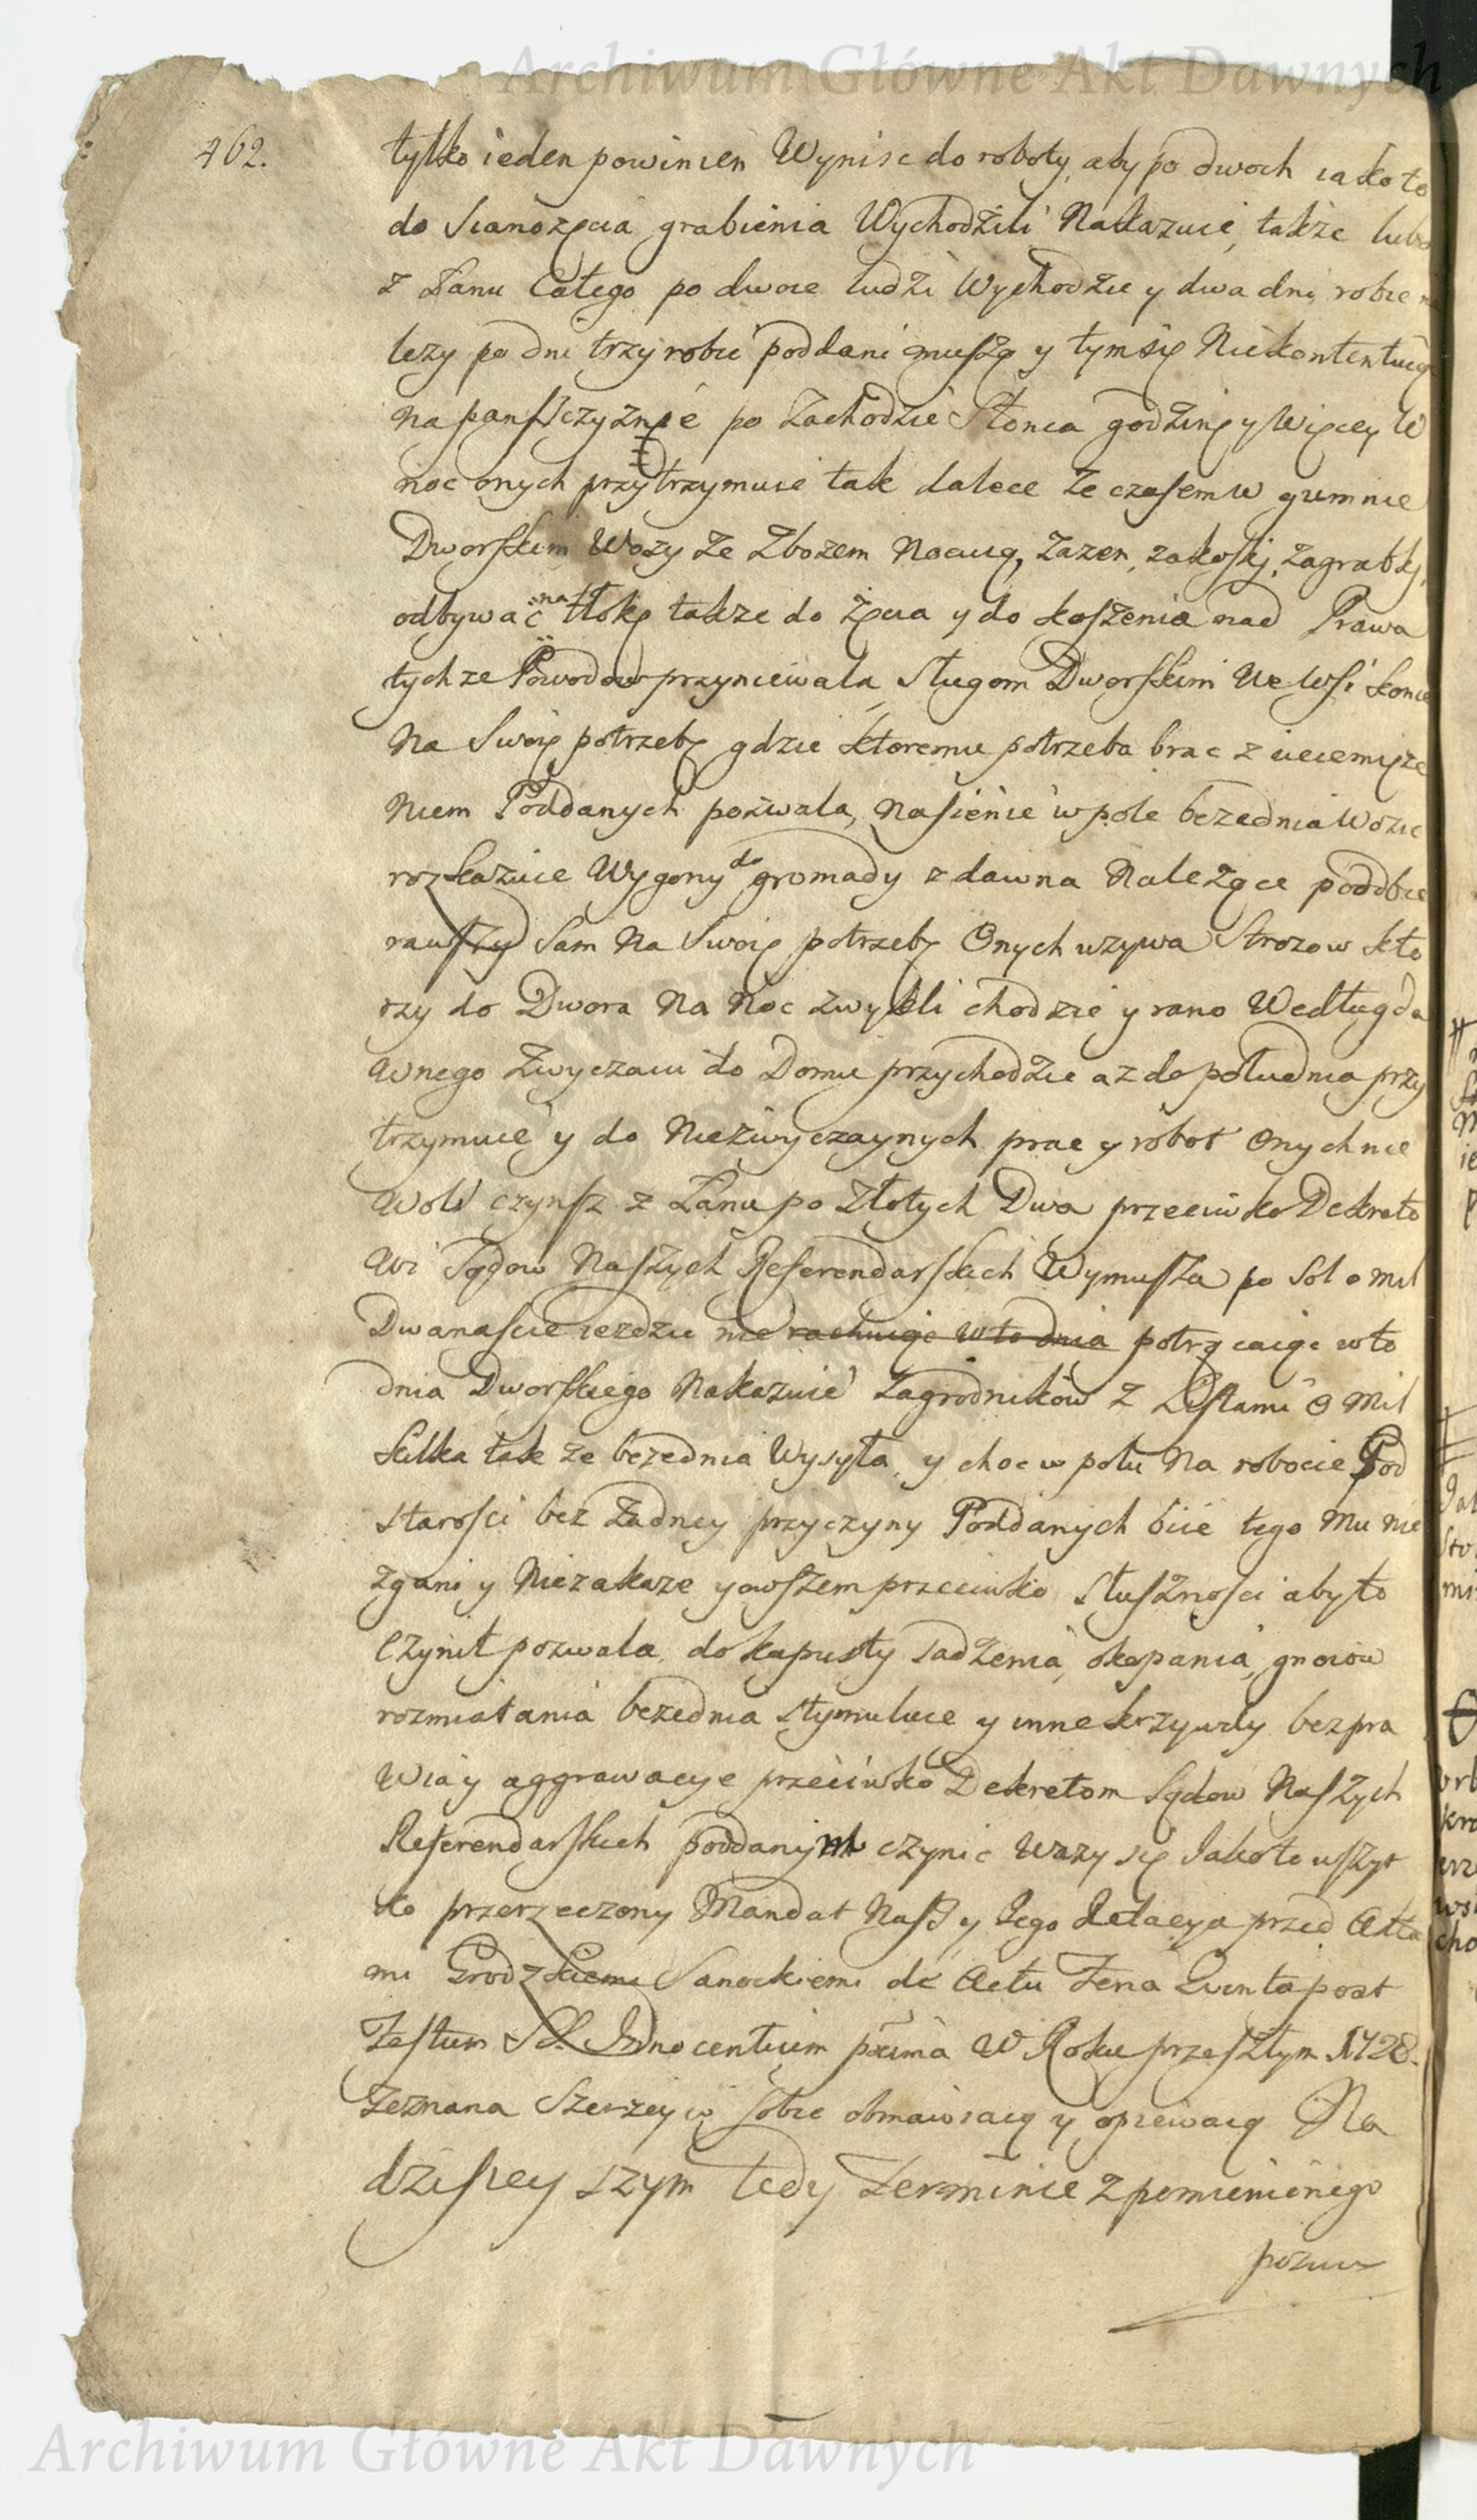 Archiwum Główne Akt Dawnych
462.
tylko ieden powinien Wynisc do roboty, aby po dwoch iako to
do Sianożęcia grabienia Wychodźili Nakazuie, także lubo
z Łanu Całego po dwoie ludźi Wychodzic y dwa dni robic n
lezy po dni trzy robić poddani muszą y tym się Niekontentuią
na panszczyznie po Zachodzie Słonca godźinę y Więcey W
noc onych przytrzymuie tak dalece ze czasem w gumnie
Dworskim Wozy ze Zbożem Nocuią, Zazen, zakoski, zagrabki,
odbywać na tłokę takze do żęcia y do koszenia nad Prawa
tychze Powodow przyniewala, sługom Dworskim We Wsi konie
Na Swoię potrzebę gdzie ktoremu potrzeba brac z uciemięże
niem Poddanych pozwala, Nasienie w pole bezednia Wozic
rozkazuie Wygony do gromady z dawna Należące poodbie
rawszy Sam Na Swoię potrzebę Onych uzywa Strozow kto
rzy do Dwora Na Noc zwykli chodzić y rano Według da
wnego Zwyczaiu do Domu przychodzic az do południa przy
trzymuie y do Niezwyczaynych prac y robot Onych nie
woli czynsz z Łanu po Złotych Dwa przeciwko Dekreto
wi Sądow Naszych Referendarskich Wymusza po Sol o mil
Dwanascie iezdzic nie rachuiąc w to dnia potrącaiąc w to
dnia Dworskiego Nakazuie Zagrodników z Listami o Mil
kilka tak ze bezednia Wysyła, y choc w polu Na robocie Pod
starosci bez Zadney przyczyny Poddanych biie tego Mu nie
zgani y Niezakaze y owszem przeciwko słusznosci aby to
Czynił pozwala, do kapusty sadzenia, okopania, gnoiow
rozmiatania bezednia stymuluie y inne krzywdy bezpra
wia y aggrawacye przeciwko Dekretom Sądow Naszych
Referendarskich poddanym czynic wazy się Iako to wszyt
ko przerzeczony Mandat Nasz y Iego Relacya przed Akta
mi Grodzkiemi Sanockiemi de Actu Feria Quinta post
Festum SS. Innocentium proxima W Roku przeszłym 1728.
Zeznana Szerzey w sobie obmawiaią y opiewaią Na
dzisieyszym tedy Terminie z pomienionego
pozwu
Archiwum Główne Akt Dawnych